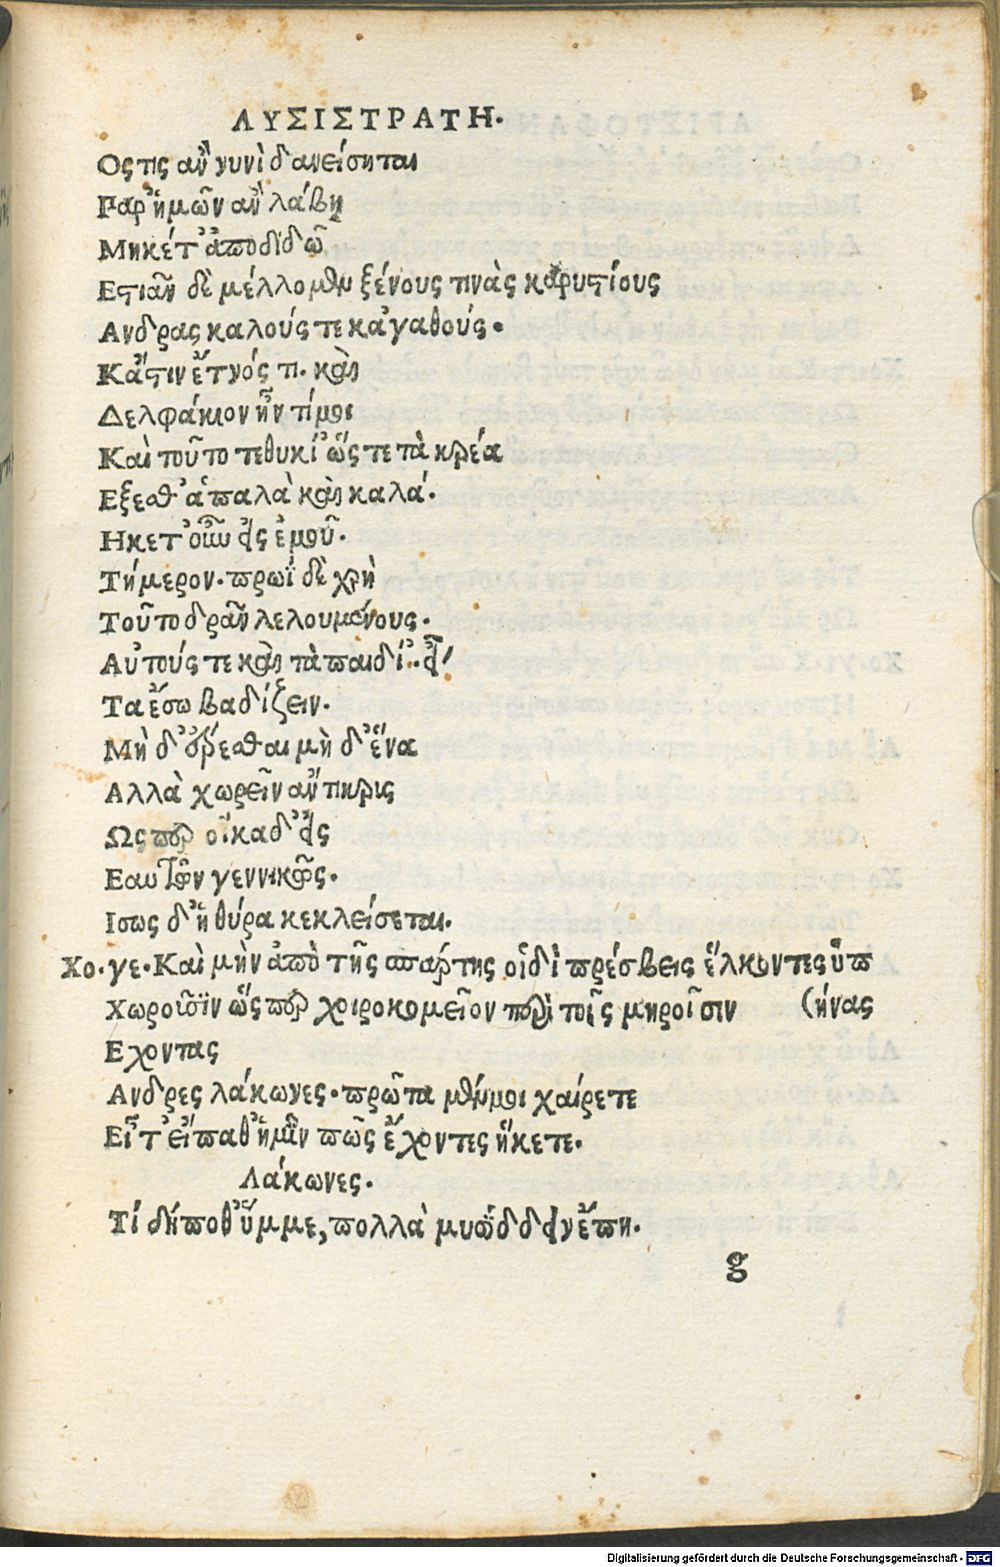 ΛΥΣΙΣΤΡΑΤΗ.
Οςτις αν νυνὶ δανείσηται
Γαρ ἡμῶν αν λάβη
Μηκέτ' ἀποδιδῶ
Εστιᾶν δὲ μέλλομεν ξένους τινὰς καρυστίους
Ανδρας καλούς τε κἀγαθούς.
Κἄστιν ἔτνός τι. καὶ
Δελφάκιον ἦν τίμοι
Καὶ τοῦτο τεθυκί' ὥς τε τὰ κρέα
Εξεσθ' ἁπαλὰ καὶ καλά.
Ηκετ' οὖν εἰς ἐμοῦ.
Τήμερον. πρωῒ δὲ χρὴ
Τοῦτο δρᾶν λελουμένους.
Αὐτούς τε καὶ τὰ παιδί'. εἶ'
Τα ἔσω βαδίζειν.
Μὴ δ' ὀρέσθαι μὴ δ' ἕνα
Αλλὰ χωρεῖν αντικρις
Ως περ οἴκαδ' εἰς
Εαυτῶν γεννικῶς.
Ισως δ' ἡ θύρα κεκλείσεται.
Χο.γε. Καὶ μὴν ἀπὸ τῆς σπάρτης οἱδὶ πρέσβεις ἕλκοντες ὑπ
Χωροῦσϊν ὥς περ χοιροκομεῖον περὶ τοῖς μηροῖσιν (ήνας
Εχοντας
Ανδρες λάκωνες. πρῶτα μένμοι χαίρετε
Εἶτ' εἴπαθ' ἡμῖν πῶς ἔχοντες ἥκετε.
Λάκωνες.
Τί δήποθ' ὔμμε, πολλὰ μυσῒδδειν ἔπη.
g
Digitalisierung gefördert durch die Deutsche Forschungsgemeinschaft - DFG